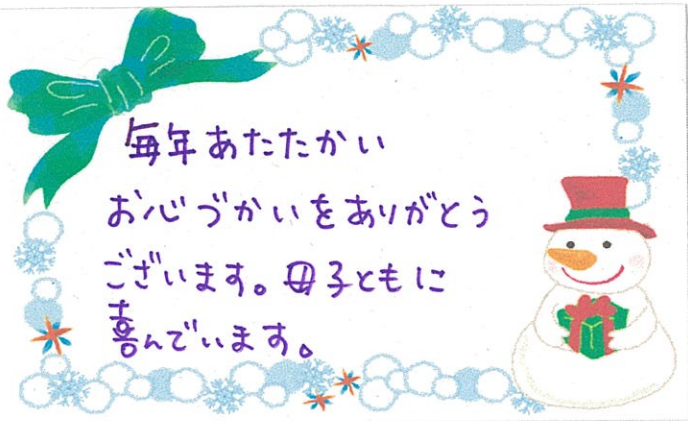 毎年あたたかい
お心づかいをありがとう
ございます。母子ともに
喜んでいます。